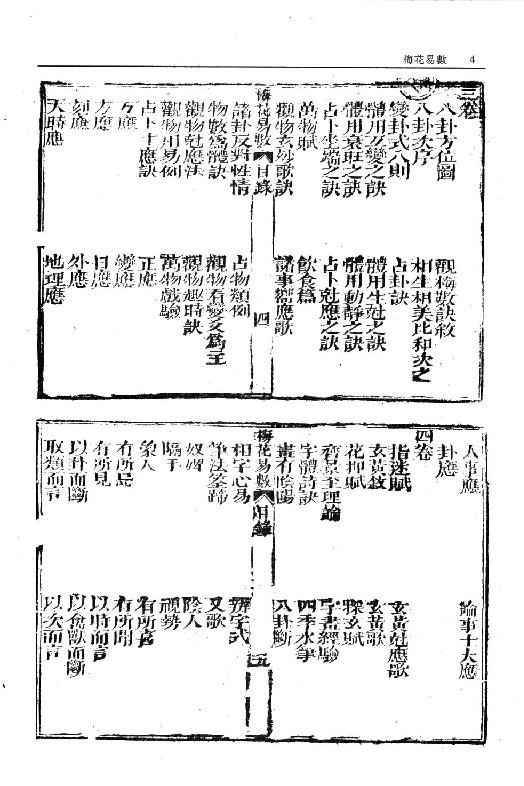 梅花易數　4
三卷
八卦方位圖　觀梅數訣敘
八卦次序　相生相美比和次之
變卦式八則　占卦訣
體用互變之訣　體用生尅之訣
體用衰旺之訣　體用動靜之訣
占卜坐端之訣　占卜尅應之訣
萬物賦　飲食篇
觀物玄妙歌訣　諸事嚮應歌
梅花易數　目錄　四
諸卦反對性情　占物類例
物數為體訣　觀物看變爻為主
觀物尅應法　觀物趣時訣
觀物用易例　萬物戲驗
占卜十應訣　正應
方應　變應
方應　日應
刻應　外應
天時應　地理應
人事應　論事十大應
卦應
四卷
指迷賦　玄黃尅應歌
玄黃敘　玄黃歌
花押賦　探玄賦
齊景至理論　字畫經驗
字體詩訣　四季水筆
畫有陰陽　八卦斷
梅花易數　目錄　五
相字心易　辨字式
筆法筌蹄　又歌
奴婢　陰人
隔手　視勢
象人　有所喜
有所見　有所聞
以卦而斷　以時而言
取類而言　以禽獸而斷
以次而言